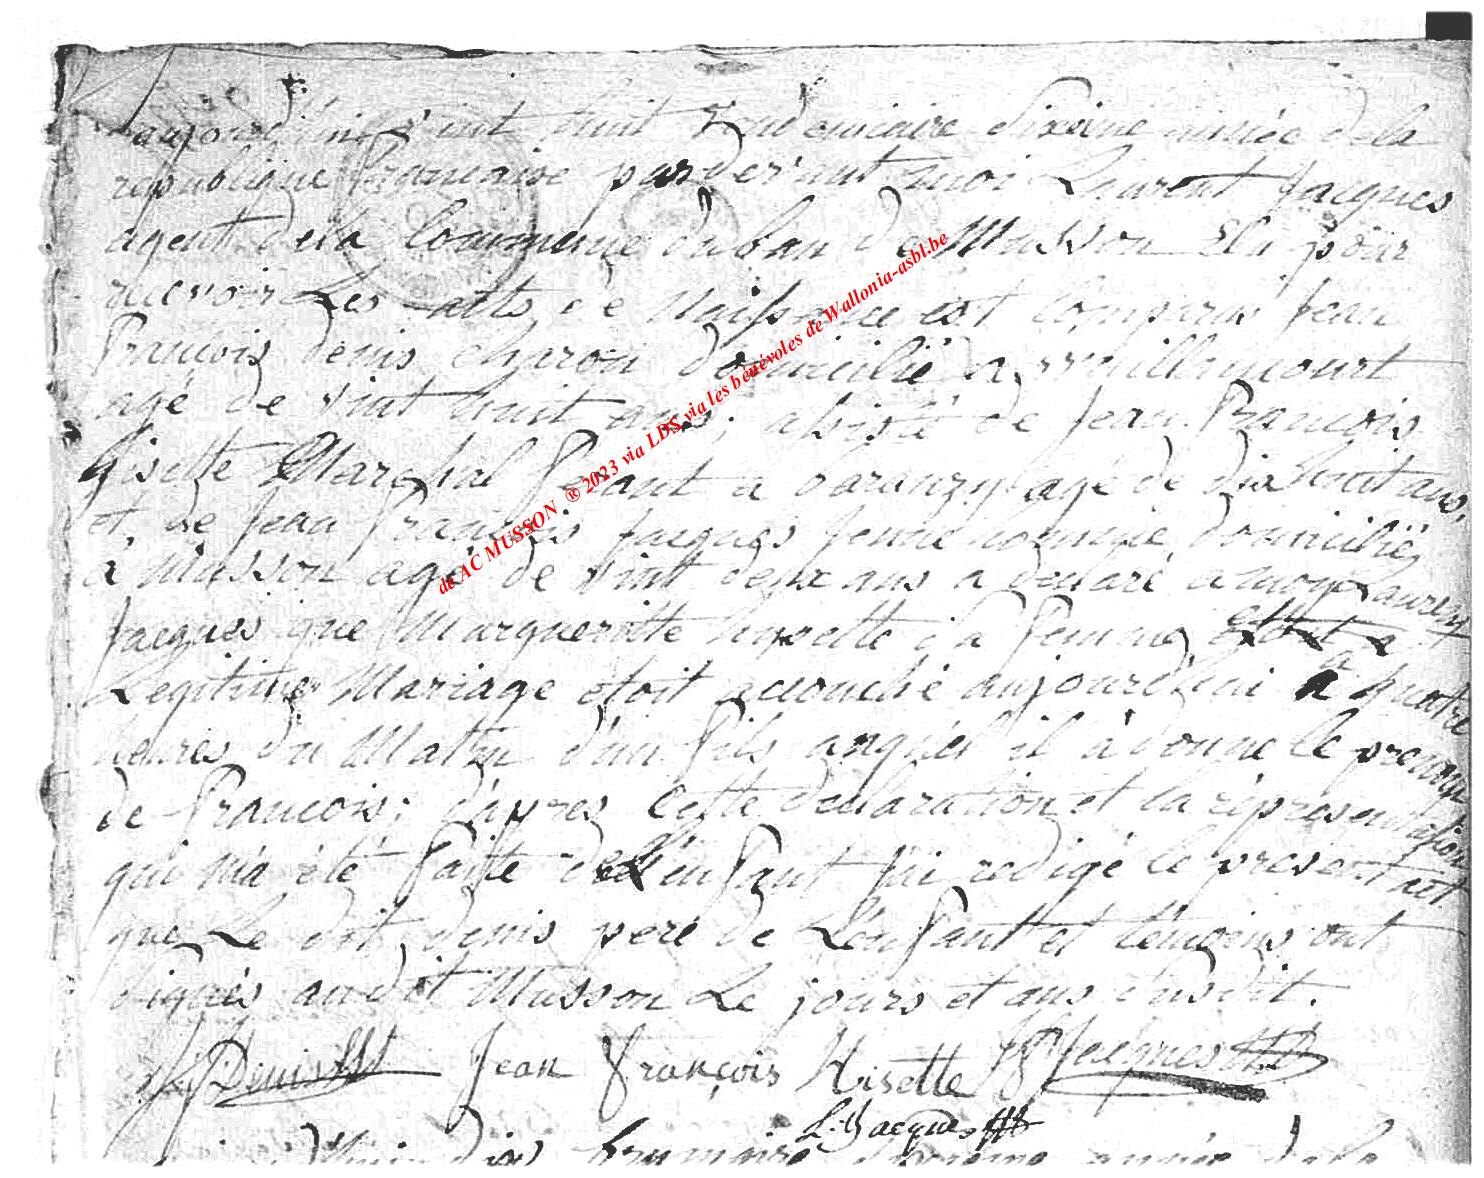 aujourd'hui vint huit vendemiaire sixieme année de la
republique francaise pardevant moi Laurent Jacques
agent de la Commune du ban de Musson Elu pour
recevoir Les actes de Naissance est comparu Jean
francois denis charon domicilié a willancourt
agé de vint huit ans, assisté de Jean francois
hisette Marechal ferant a baranzy agé de dix huit ans
et de Jean francois Jacques jeune homme, Domicilié
a Musson agé de vint deux ans a declaré a moy Laurent
Jacques que Margueritte hisette sa femme en
Legitime Mariage étoit accouché aujourd'hui a quatre
heures du Matin d'un fils auquel il a donné le prenom
de francois; d'apres Cette declaration et la representation
qui m'a été faite de l'enfant j'ai redigé le present act
que Le dit denis pere de L'enfant et temoins ont
signés au dit Musson Le jours et ans susdit.
Denis Jean François Hisette Jacques
L. Jacques
dix brumaire sixieme année de la
de AC MUSSON ® 2023 via LDS via les bénévoles de Wallonia-asbl.be